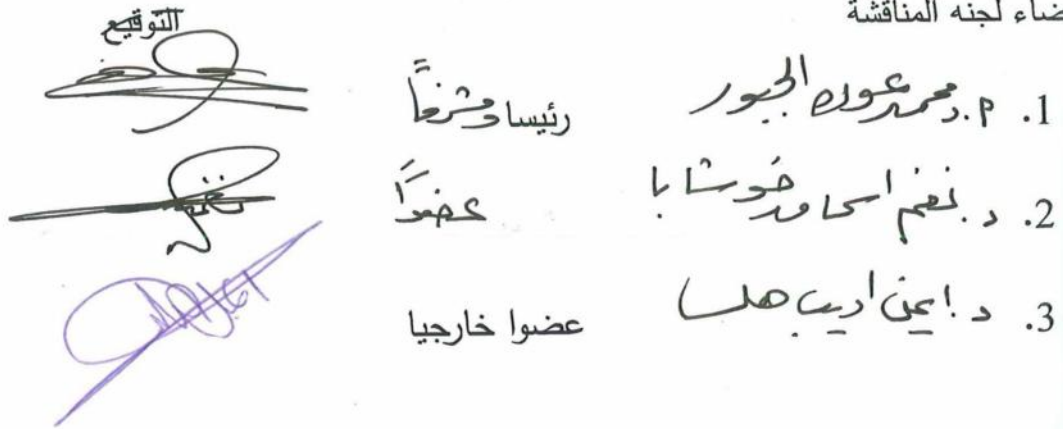 ضاء لجنه المناقشة
التوقيع
1. م.د محمد عوده الجبور رئيسا ومشرفاً
2. د. نغم اسحاق خوشابا عضواً
3. د. ايمن اديب هلسا عضوا خارجيا